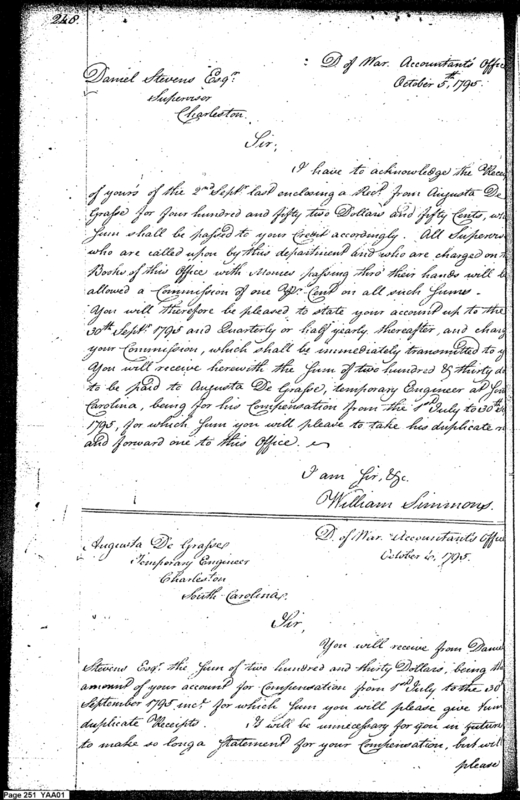 248.
D of War. Accountants Offic
October 5th, 1795.
Daniel Stevens Esqr.
Supervisor
Charleston
Sir,
I have to acknowledge the Recei
of yours of the 2nd Septr. last enclosing a Rect. from Augusta De
Grasse for four hundred and fifty two Dollars and fifty Cents, wh
Sum shall be passed to your Credit accordingly. All Supervis
who are called upon by this department and who are charged on
Books of this Office with Monies passing thro' their hands will b
allowed a Commission of one Pr. Cent on all such Sums.
You will therefore be pleased to state your account up to the
30th Septr. 1795 and Quarterly or half yearly thereafter, and charg
your Commission, which shall be immediately transmitted to y
You will receive herewith the Sum of two hundred & thirty do
to be paid to Augusta De Grasse, temporary Engineer at
Carolina, being for his Compensation from the 1st July to 30th
1795, for which Sum you will please to take his duplicate r
and forward one to this Office.
I am Sir, &c.
William Simmons.
D. of War Accountants Offic
October 6, 1795.
Augusta De Grasse
Temporary Engineer
Charleston
South-Carolina.
Sir,
You will receive from Danie
Stevens Esqr. the Sum of two hundred and thirty Dollars, being the
amount of your account for Compensation from 1st July to the 30
September 1795 inct. for which Sum you will please give him
duplicate Receipts. It will be unnecessary for you in future
to make so long a Statement for your Compensation, but will
please
Page 251 YAA01